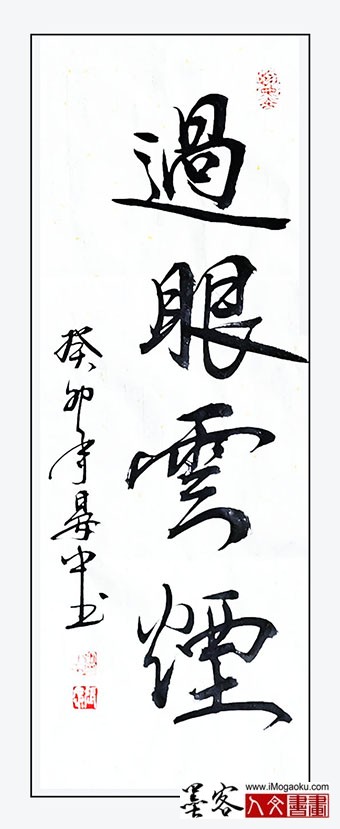 過眼雲煙
癸卯年晏中书
墨客
www.iMogaoku.com
人文書畫